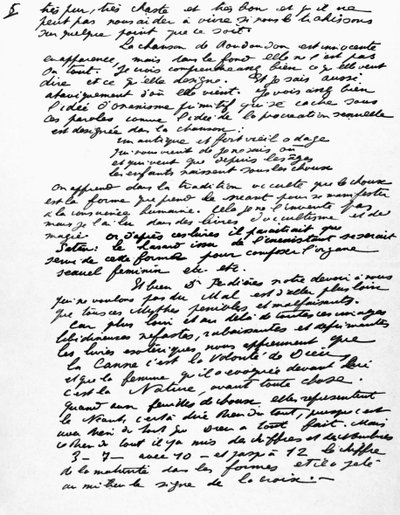 très pur, très chaste et très bon et qu'il ne
peut pas nous aider à vivre si nous le trahissons
sur quelque point que ce soit.
La chanson de Doudoudou est innocente
en apparence, mais dans le fond elle ne l'est pas
du tout. Je crois comprendre assez bien ce qu'elle veut
dire et ce qu'elle désigne. Et je sais aussi
ataviquement d'où elle vient. Je vois assez bien
l'idée d'onanisme primitif qui se cache sous
ces paroles comme l'idée de la procréation sexuelle
est désignée dans la chanson:
un antique et fort vieil adage
qui nous vient de je ne sais où
et qui veut que depuis les âges
les enfants naissent sous les choux
On apprend dans la tradition occulte que le chou
est la forme que prend le néant pour se manifester
à la conscience humaine. Cela je ne l'invente pas
mais je l'ai lu dans des livres d'occultisme et de
magie. Or d'après ces livres il paraîtrait que
Satan: le hasard issu de l'inexistant se serait
servi de cette forme pour composer l'organe
sexuel féminin etc etc.
Et bien Dr Ferdière notre devoir à nous
qui ne voulons pas du Mal est d'aller plus loin
que tous ces Mythes pénibles et malfaisants.
Car plus loin et au delà de toutes ces images
libidineuses néfastes, rabaissantes et déprimantes
les livres ésotériques nous apprennent que
la Canne c'est la Volonté de Dieu,
et que la femme qu'il a évoquée devant lui
c'est la Nature, avant toute chose.
Quant aux feuilles de choux elles représentent
le Néant, c'est à dire Rien du tout, puisque c'est
avec Rien du tout que Dieu a tout fait. Mais
ce Rien du tout il y a mis des chiffres et des nombres
3 - 7 - avec 10 - et jusqu'à 12 le chiffre
de la maturité dans les formes et il a jeté
au milieu le signe de la croix. —